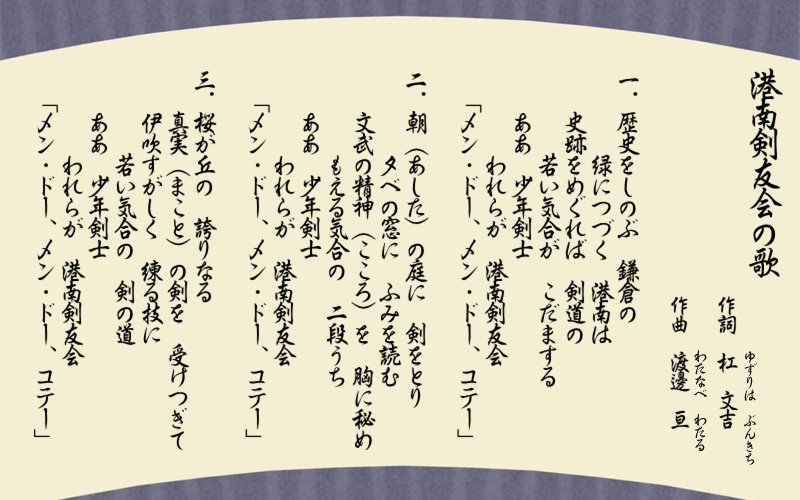 港南剣友会の歌
ゆずりは ぶんきち
作詞 杠 文吉
わたなべ わたる
作曲 渡邊 亘
一．歴史をしのぶ 鎌倉の
緑につづく 港南は
史跡をめぐれば 剣道の
若い気合が こだまする
ああ 少年剣士
われらが 港南剣友会
「メン・ドー、メン・ドー、コテー」
二．朝（あした）の庭に 剣をとり
夕べの窓に ふみを読む
文武の精神（こころ）を 胸に秘め
もえる気合の 二段うち
ああ 少年剣士
われらが 港南剣友会
「メン・ドー、メン・ドー、コテー」
三．桜が丘の 誇りなる
真実（まこと）の剣を 受けつぎて
伊吹すがしく 練る技に
若い気合の 剣の道
ああ 少年剣士
われらが 港南剣友会
「メン・ドー、メン・ドー、コテー」